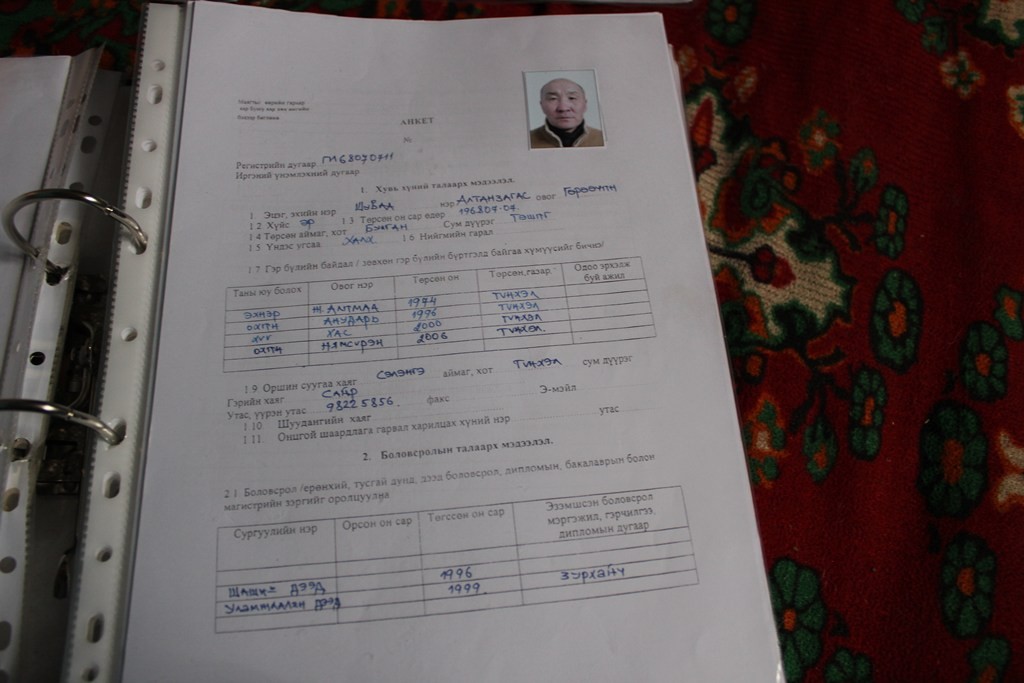 АНКЕТ
№
Регистрийн дугаар ГИ68070711
Иргэний үнэмлэхний дугаар
1. Хувь хүний талаарх мэдээлэл.
1. Эцэг, эхийн нэр ШУВАД нэр АЛТАНЗАГАС овог
1.2. Хүйс эр 1.3 Төрсөн он сар өдөр 196807.07.
1.4 Төрсөн аймаг, хот БУЛГАН Сум дүүрэг ТЭШИГ
1.5 Үндэс угсаа ХАЛХ 1.6 Нийгмийн гарал
1.7 Гэр бүлийн байдал / зөвхөн гэр бүлийн бүртгэлд байгаа хүмүүсийг бичнэ/
Таны юу болох Овог нэр Төрсөн он Төрсөн газар Одоо эрхэлж буй ажил
ЭХНЭР 1974 ТҮНХЭЛ
ОХИН АНУДАРЬ 1996 ТҮНХЭЛ
ХҮҮ ХАС 2000 ТҮНХЭЛ
ОХИН НЯМСҮРЭН 2006 ТҮНХЭЛ
1.9 Оршин суугаа хаяг СЭЛЭНГЭ аймаг, хот ТҮНХЭЛ сум дүүрэг
Гэрийн хаяг САЙР
Утас, үүрэн утас 98225856. факс Э-мэйл
1.10. Шуудангийн хаяг
1.11. Онцгой шаардлага гарвал харилцах хүний нэр утас
2. Боловсролын талаарх мэдээлэл.
2.1 Боловсрол /ерөнхий, тусгай дунд, дээд боловсрол, дипломын, бакалаврын болон
магистрийн зэргийг оролцуулна
Сургуулийн нэр Орсон он сар Төгссөн он сар Эзэмшсэн боловсрол мэргэжил, гэрчилгээ, дипломын дугаар
ШАШНЫ ДЭЭД 1996 ЗУРХАЙЧ
УЛАМЖЛАЛЫН ДЭЭД 1999.